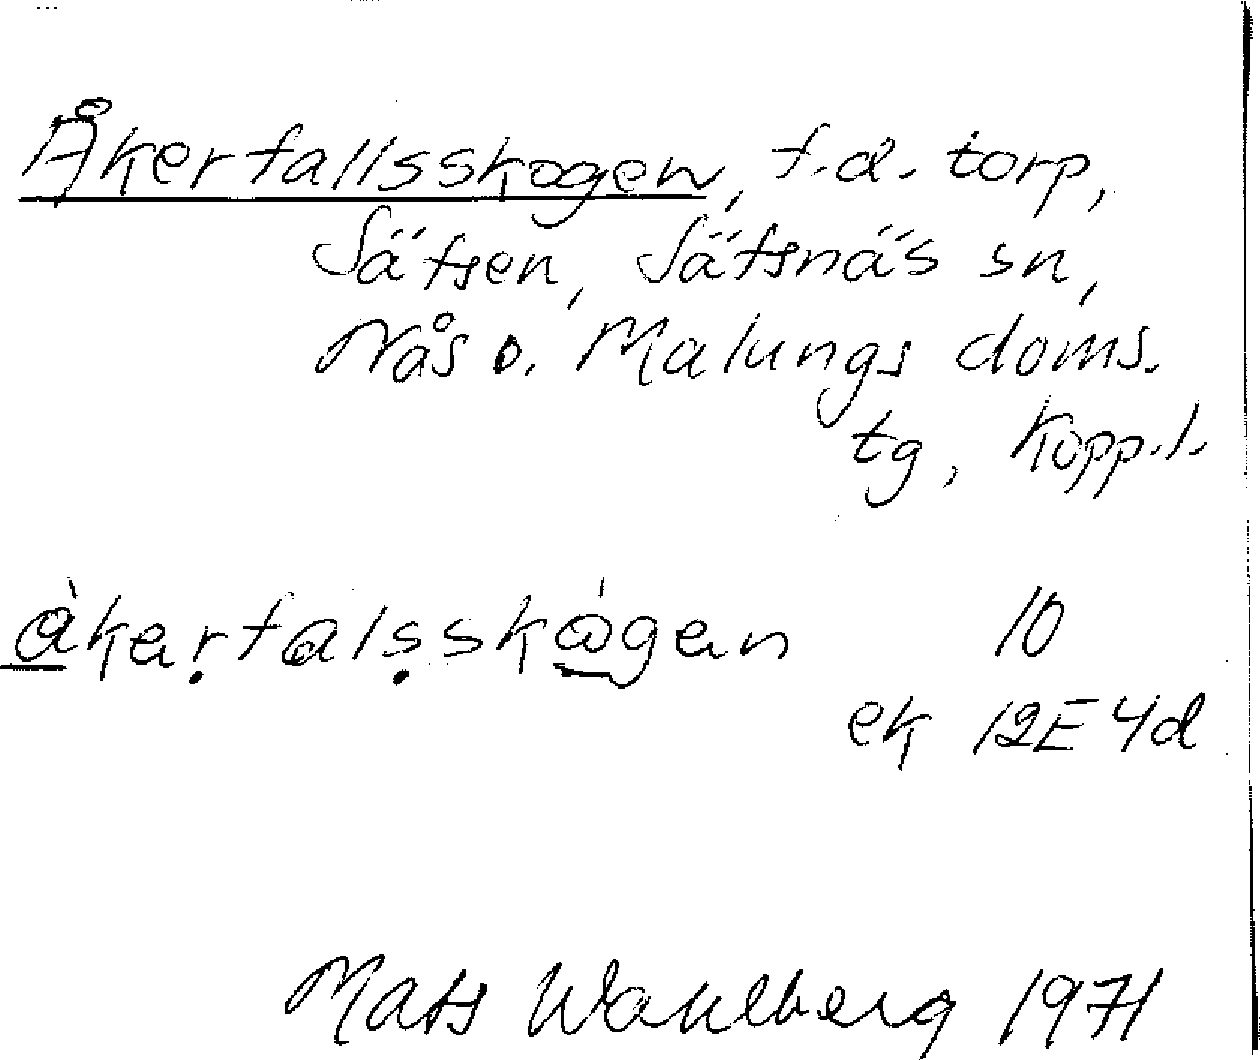 Åkerfallsskogen, f.d. torp,
Sätsen, Sätsnäs sn,
Nås o. Malungs doms.
tg, Kopp.l.
àkerfalsskògen 10
ek 12E4d
Mats Wahlberg 1971